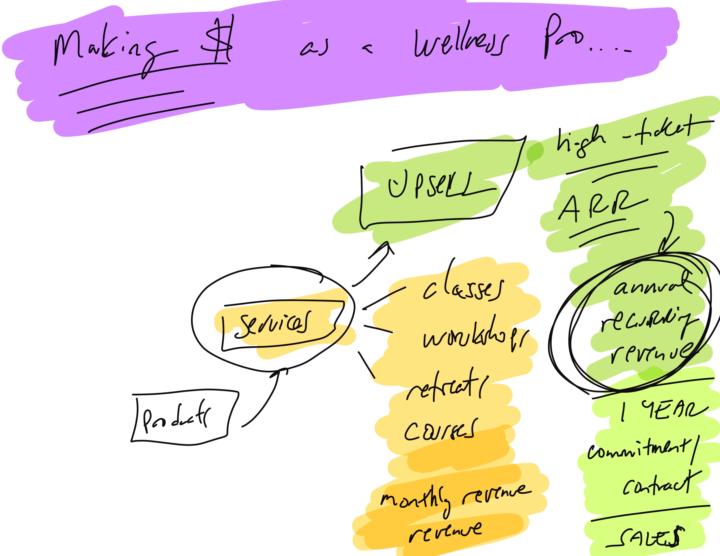 Making $ as a Wellness Pro....
high-ticket
UPSELL
ARR
annual
recurring
revenue
classes
services
workshops
retreats
Products
courses
1 YEAR
commitment/
contract
monthly revenue
revenue
SALES